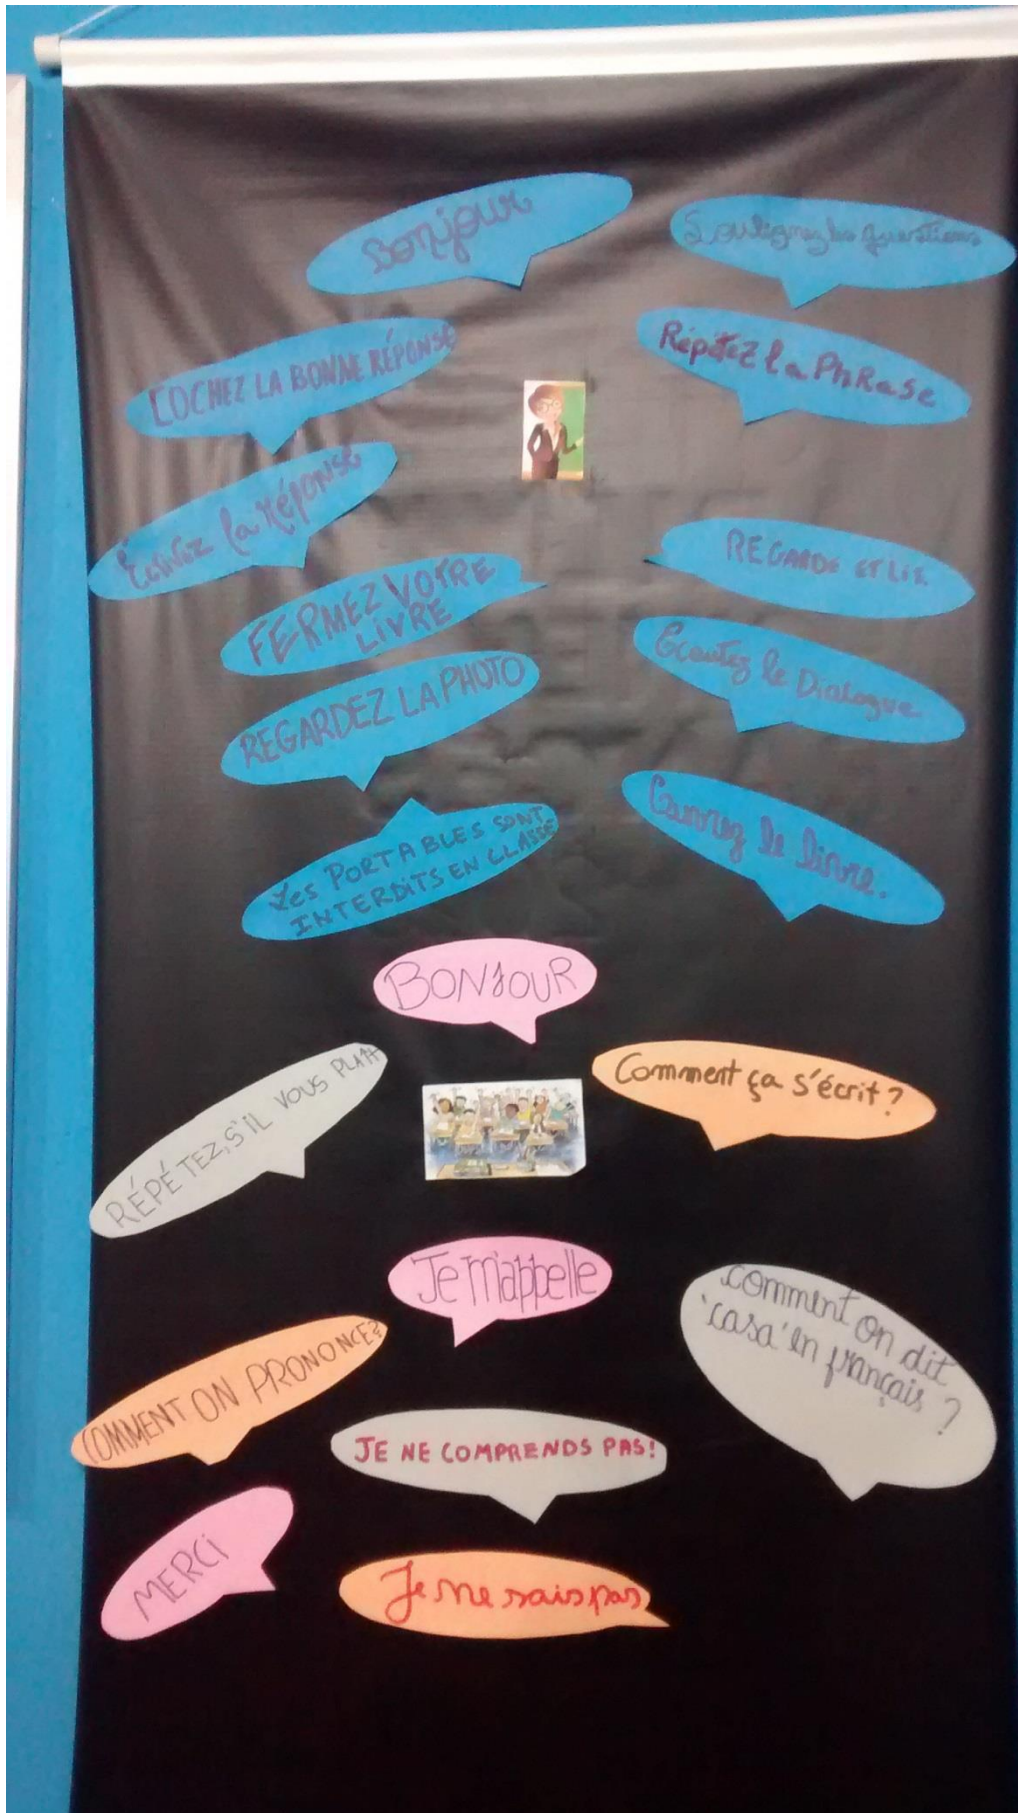 Bonjour
Soulignez les questions
COCHEZ LA BONNE RÉPONSE
Répétez la PhRase
Écrivez la Réponse
REGARDE ET LIS
FERMEZ VOTRE
LIVRE
Écoutez le Dialogue.
REGARDEZ LA PHOTO
Ouvrez le livre.
Les PORTABLES SONT
INTERDITS EN CLASSE
BONJOUR
RÉPÉTEZ, S'IL VOUS PLAÎT
Comment ça s'écrit ?
Je m'appelle
comment on dit
'casa' en français ?
COMMENT ON PRONONCE?
JE NE COMPRENDS PAS!
MERCI
Je ne sais pas